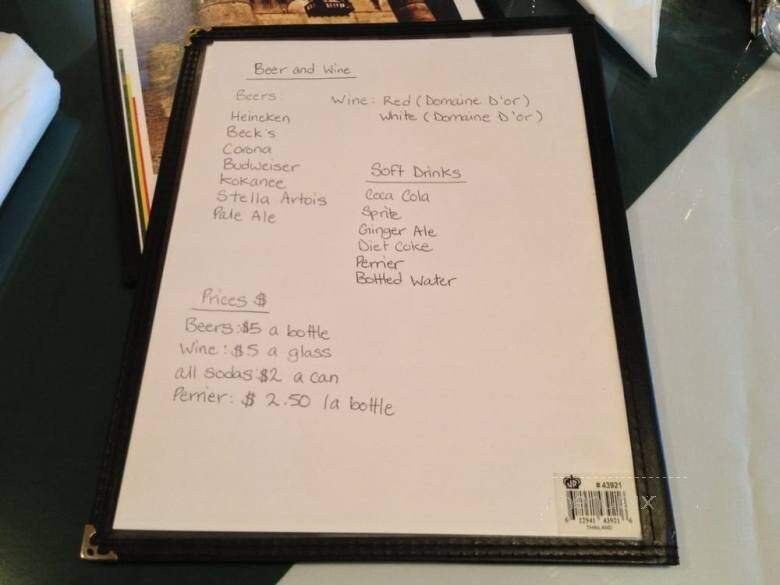 Beer and Wine
Beers:
Heineken
Beck's
Corona
Budweiser
Kokanee
Stella Artois
Pale Ale
Wine: Red (Domaine D'or)
White (Domaine D'or)
Soft Drinks
Coca Cola
Sprite
Ginger Ale
Diet Coke
Perrier
Bottled Water
Prices $
Beers: $5 a bottle
Wine: $5 a glass
all sodas: $2 a can
Perrier: $ 2.50 /a bottle
JP
# 43921
6 12941 43921 6
THAILAND